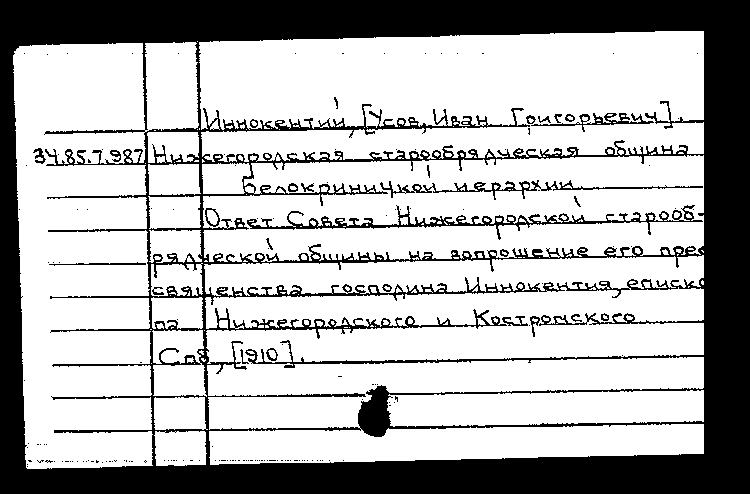 Иннокентий, [Усов, Иван Григорьевич].
34.85.7.987 Нижегородская старообрядческая община
белокриницкой иерархии
Ответ Совета Нижегородской старооб-
рядческой общины на вопрошение его прео
священства господина Иннокентия, еписко
па Нижегородского и Костромского
Спб, [1910].